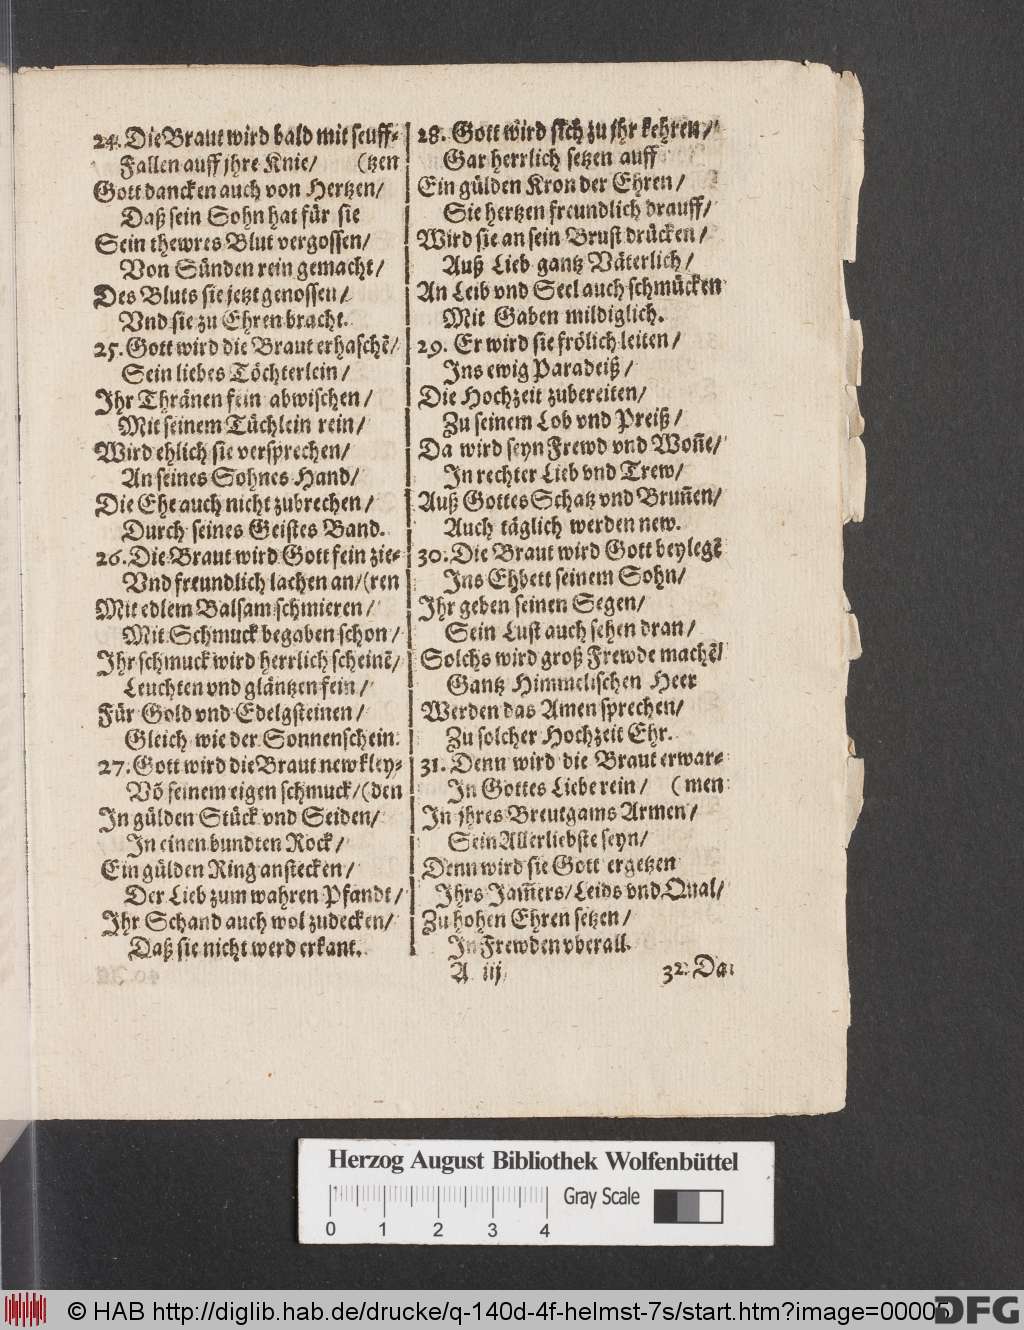 24. Die Braut wird bald mit seuff⸗
Fallen auff jhre Knie/ (tzen
Gott dancken auch von Hertzen/
Daß sein Sohn hat für sie
Sein thewres Blut vergossen/
Von Sünden rein gemacht/
Des Bluts sie jetzt genossen/
Vnd sie zu Ehren bracht.
25. Gott wird die Braut erhaschẽ/
Sein liebes Töchterlein/
Ihr Thränen fein abwischen/
Mit seinem Tüchlein rein/
Wird ehlich sie versprechen/
An seines Sohnes Hand/
Die Ehe auch nicht zubrechen/
Durch seines Geistes Band.
26. Die Braut wird Gott fein zie⸗
Vnd freundlich lachen an/ (ren
Mit edlem Balsam schmieren/
Mit Schmuck begaben schon/
Ihr schmuck wird herrlich scheinẽ/
Leuchten vnd gläntzen fein/
Für Gold vnd Edelgsteinen/
Gleich wie der Sonnenschein.
27. Gott wird die Braut newkley⸗
Võ seinem eigen schmuck/ (den
In gülden Stück vnd Seiden/
In einen bundten Rock/
Ein gülden Ring anstecken/
Der Lieb zum wahren Pfandt/
Ihr Schand auch wol zudecken/
Daß sie nicht werd erkant.
28. Gott wird sich zu jhr kehren/
Gar herrlich setzen auff
Ein gülden Kron der Ehren/
Sie hertzen freundlich drauff/
Wird sie an sein Brust drücken/
Auß Lieb gantz Väterlich/
An Leib vnd Seel auch schmücken
Mit Gaben mildiglich.
29. Er wird sie frölich leiten/
Ins ewig Paradeiß/
Die Hochzeit zubereiten/
Zu seinem Lob vnd Preiß/
Da wird seyn Frewd vnd Woñe/
In rechter Lieb vnd Trew/
Auß Gottes Schatz vnd Bruñen/
Auch täglich werden new.
30. Die Braut wird Gott beylegẽ
Ins Ehbett seinem Sohn/
Ihr geben seinen Segen/
Sein Lust auch sehen dran/
Solchs wird groß Frewde machẽ/
Gantz Himmelischen Heer
Werden das Amen sprechen/
Zu solcher Hochzeit Ehr.
31. Denn wird die Braut erwar⸗
In Gottes Liebe rein/ (men
In jhres Breutgams Armen/
Sein Allerliebste seyn/
Denn wird sie Gott ergetzen
Ihrs Jam̃ers/ Leids vnd Qual/
Zu hohen Ehren setzen/
In Frewden vberall.
A iij
32. Da
Herzog August Bibliothek Wolfenbüttel
0 1 2 3 4
Gray Scale
© HAB http://diglib.hab.de/drucke/q-140d-4f-helmst-7s/start.htm?image=00005
DFG